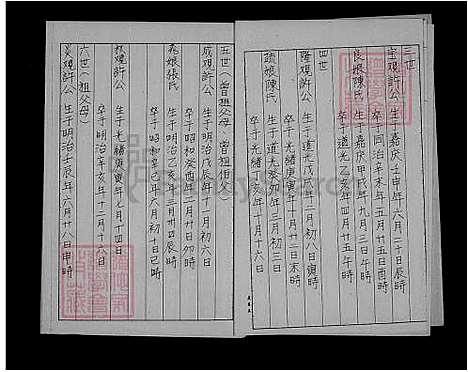 三世
宝規許公 生于嘉庆壬申年六月二十日辰時
卒于同治辛未年五月廿五日酉時
良娘陳氏 生于嘉庆甲戌年九月三日午時
卒于道光乙亥年四月廿五午時
四世
隆規許公 生于道光戊戌年十一月初八日寅時
卒于光緒庚寅年十一月二日未時
謨娘陳氏 生于道光癸卯年三月初三日
卒于光緒丁亥年十月十六日
五世(曾祖父母 曾祖伯父)
成規許公 生于明治戊辰年十一月初六日
卒于昭和癸酉年二月廿日卯時
嘉娘張氏 生于明治乙亥年三月廿四日辰時
卒于昭和辛巳年六月初十日巳時
規許公 生于光緒庚寅年七月十四日
卒于明治辛亥年十二月十六日
六世(祖父母)
規許公 生于明治壬辰年六月廿八日申時